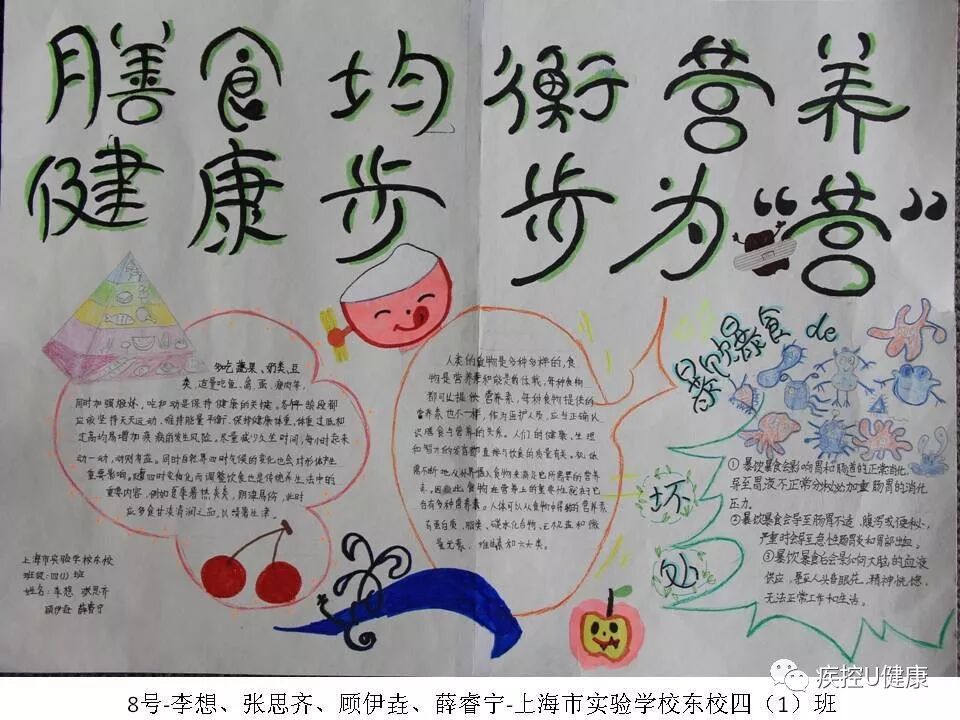 膳食均衡营养
健康步步为“营”
多吃蔬果、奶类、豆
类,适量吃鱼、禽、蛋、瘦肉等,
同时加强锻炼,吃和动是保持健康的关键。各年龄段都
应该坚持天天运动,维持能量平衡,保持健康体重,体重过低和
过高均易增加疾病的发生风险,尽量减少久坐时间,每小时起来
动一动,动则有益。同时自然界四时气候的变化也会对形体产生
重要影响。随四时变换而调整饮食也是传统养生法中的
重要内容,例如夏季暑热炎炎,阴津易伤,此时
应多食甘凉清润之品,以清暑生津。
上海市实验学校东校
班级:四(1)班
姓名:李想 张思齐
顾伊垚 薛睿宁
人类的食物是多种多样的,食
物是营养素和能量的体载,每种食物
都可以提供营养素,每种食物提供的
营养素也不一样,作为医护人员,应当正确认
识膳食与营养的关系。人们的健康、生理
和智力的发育都直接与饮食的质量有关。机体
需不断地从外界摄入食物来满足它所需要的营养
素。因此此食物在营养上的重要性就在于它
含有多种营养素。人体可以从食物中得到的营养
有蛋白质,脂类,碳水化合物,无机盐和微
量元素,维生素和水六类。
暴饮暴食 de
坏
处
①暴饮暴食会影响胃和肠道的正常消化,
导至胃液不正常分泌处加重肠胃的消化
压力。
②暴饮暴食会导至肠胃不适,腹泻或便秘,
严重时会导至急性肠胃炎和胃部出血。
③暴饮暴食后会影响大脑的血液
供应,甚至人头昏眼花,精神恍惚,
无法正常工作和生活。
疾控U健康
8号-李想、张思齐、顾伊垚、薛睿宁-上海市实验学校东校四（1）班